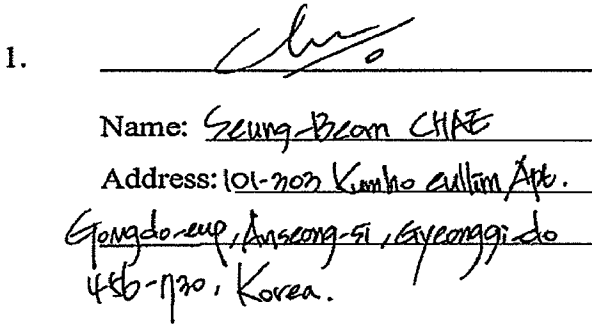 1.
Name: Seung-Beom CHAE
Address: 101-303 Kumho eullim Apt.
Gongdo-eup, Anseong-si, Gyeonggi-do
456-730, Korea.